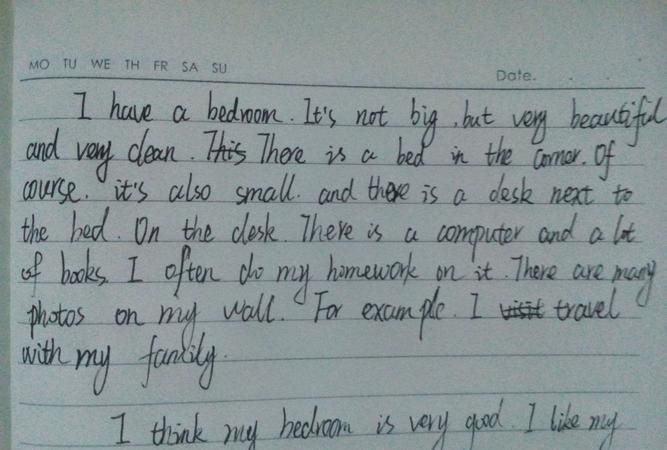 MO TU WE TH FR SA SU
Date.
I have a bedroom. It's not big, but very beautiful
and very clean. This There is a bed in the corner. Of
course. it's also small. and there is a desk next to
the bed. On the desk. There is a computer and a lot
of books. I often do my homework on it. There are many
photos on my wall. For example. I visit travel
with my family.
I think my bedroom is very good. I like my